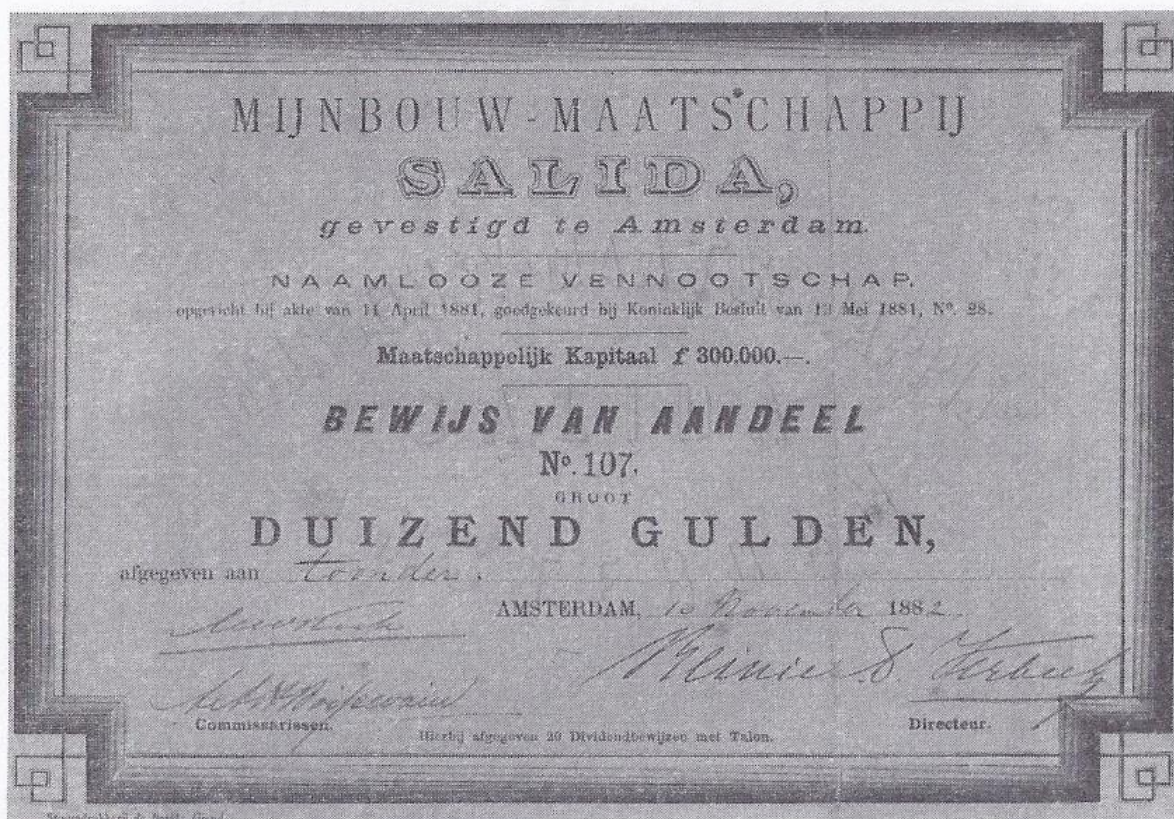 MIJNBOUW-MAATSCHAPPIJ
SALIDA,
gevestigd te Amsterdam.
NAAMLOOZE VENNOOTSCHAP.
opgericht bij akte van 11 April 1881, goedgekeurd bij Koninklijk Besluit van 13 Mei 1881, No. 28.
Maatschappelijk Kapitaal f 300.000.—.
BEWIJS VAN AANDEEL
No. 107.
GROOT
DUIZEND GULDEN,
afgegeven aan toonder.
AMSTERDAM, 10 November 1882.
Reinier D. Verbeek
Commissarissen.
Directeur.
Hierbij afgegeven 20 Dividendbewijzen met Talon.